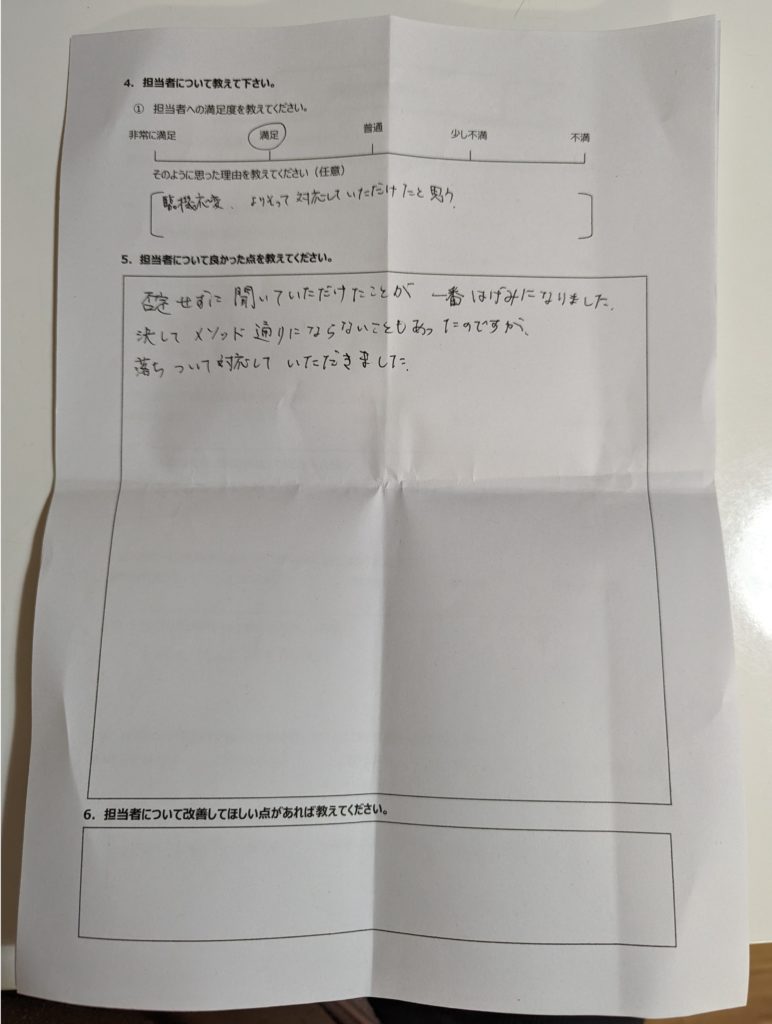 4．担当者について教えて下さい。
① 担当者への満足度を教えてください。
非常に満足 満足 普通 少し不満 不満
そのように思った理由を教えてください（任意）
臨機応変、よりそって対応していただけたと思う。
5．担当者について良かった点を教えてください。
否定せずに聞いていただけたことが一番はげみになりました。
決してメソッド通りにならないこともあったのですが、
落ちついて対応していただきました。
6．担当者について改善してほしい点があれば教えてください。